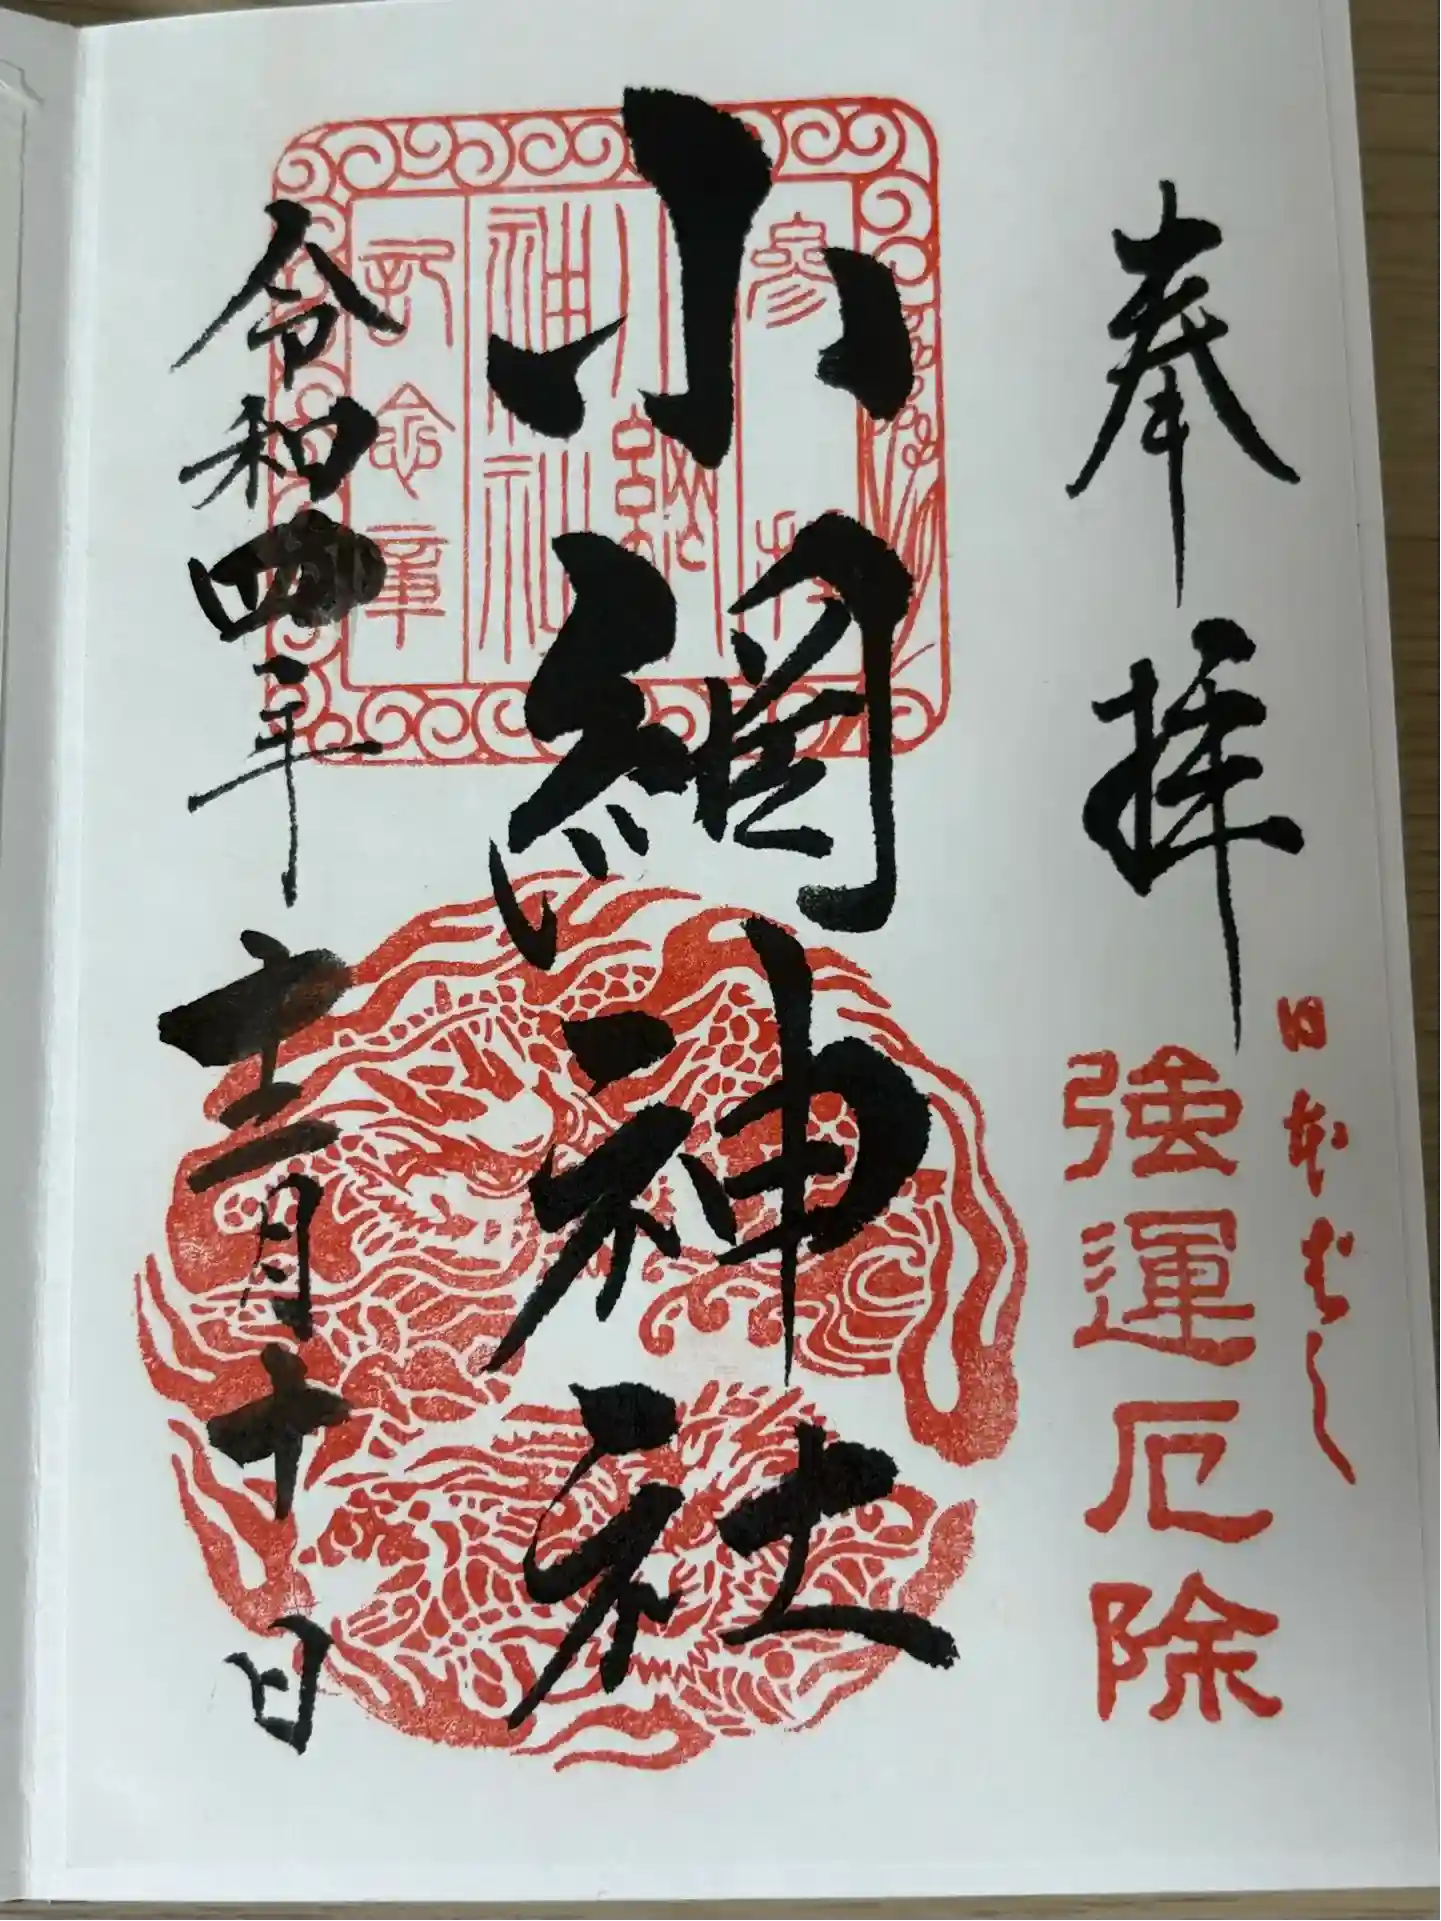 奉拝
日本はし
強運厄除
小網神社
参拝
小網
神社
記念章
令和四年十二月十日